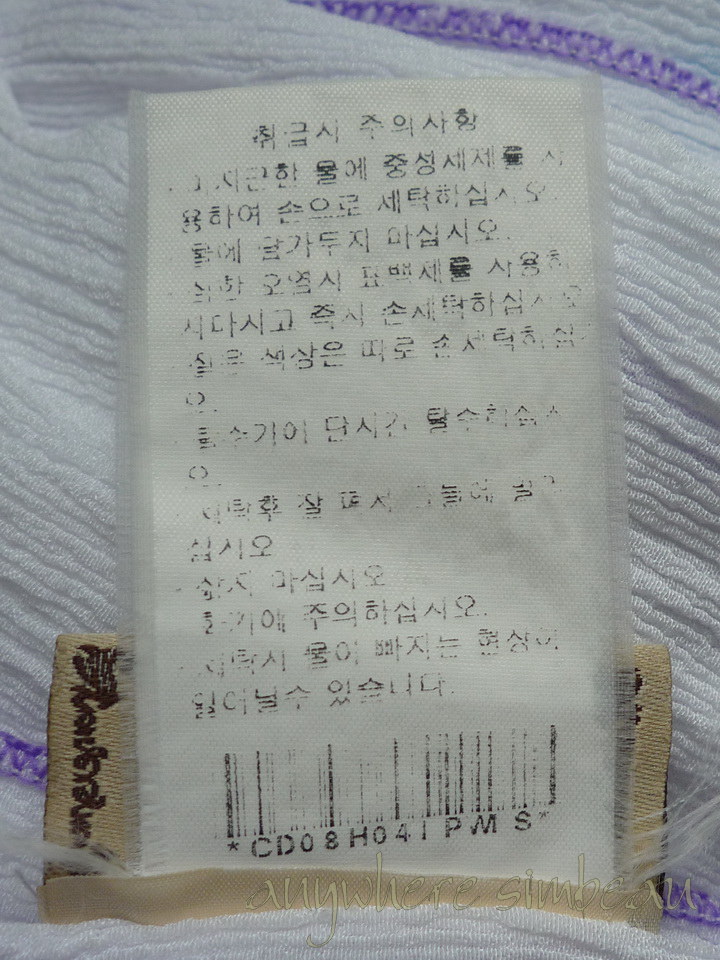 취급시 주의사항
미지근한 물에 중성세제를 사
용하여 손으로 세탁하십시오.
물에 담가두지 마십시오.
심한 오염시 표백제를 사용하
지마시고 즉시 손세탁하십시오
짙은 색상은 따로 손세탁하십시
오.
탈수기에 단시간 탈수하십시
오.
세탁후 잘 펴서 그늘에
십시오
삶지 마십시오
화기에 주의하십시오.
세탁시 물이 빠지는 현상이
일어날수 있습니다.
*CD08H041PWS*
anywhere simbeau